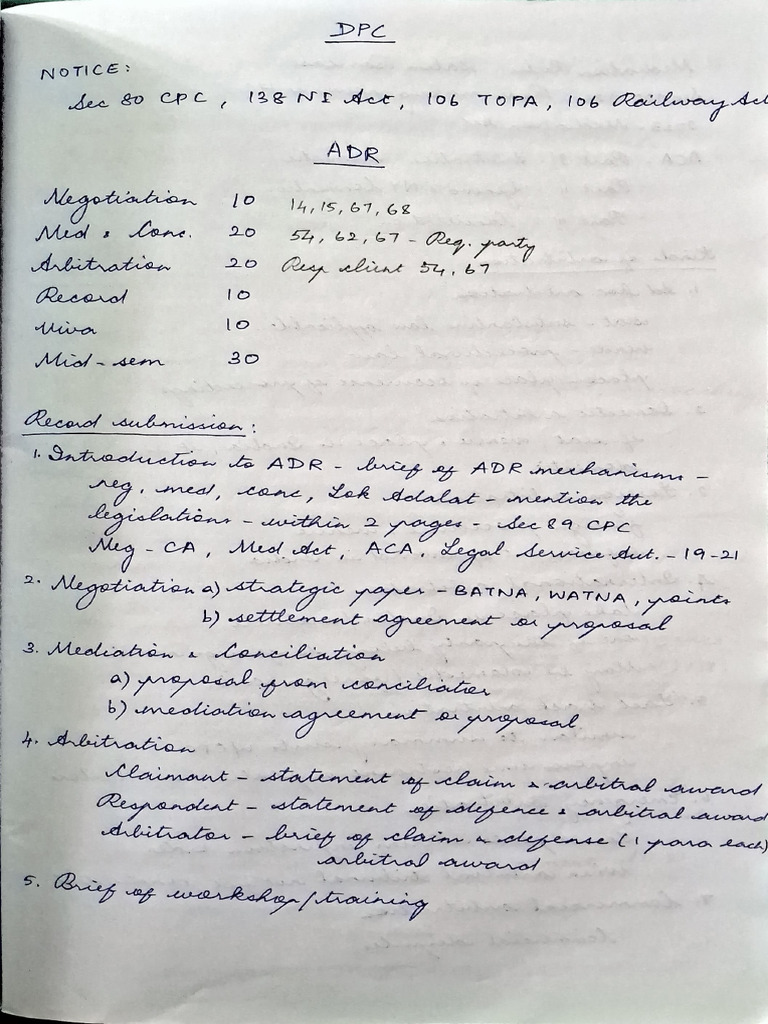 DPC
NOTICE:
Sec 80 CPC, 138 NI Act, 106 TOPA, 106 Railway Act
ADR
Negotiation 10 14, 15, 67, 68
Med & Conc. 20 54, 62, 67 - Req. party
Arbitration 20 Resp client 54, 67
Record 10
Viva 10
Mid-sem 30
Record submission:
1. Introduction to ADR - brief of ADR mechanisms -
neg, med, conc, Lok Adalat - mention the
legislations - within 2 pages - Sec 89 CPC
Neg - CA, Med Act, ACA, Legal Service Aut. - 19-21
2. Negotiation a) strategic paper - BATNA, WATNA, points
b) settlement agreement or proposal
3. Mediation & Conciliation
a) proposal from conciliator
b) mediation agreement or proposal
4. Arbitration
Claimant - statement of claim & arbitral award
Respondent - statement of defence & arbitral award
Arbitrator - brief of claim & defense (1 para each)
arbitral award
5. Brief of workshop/training